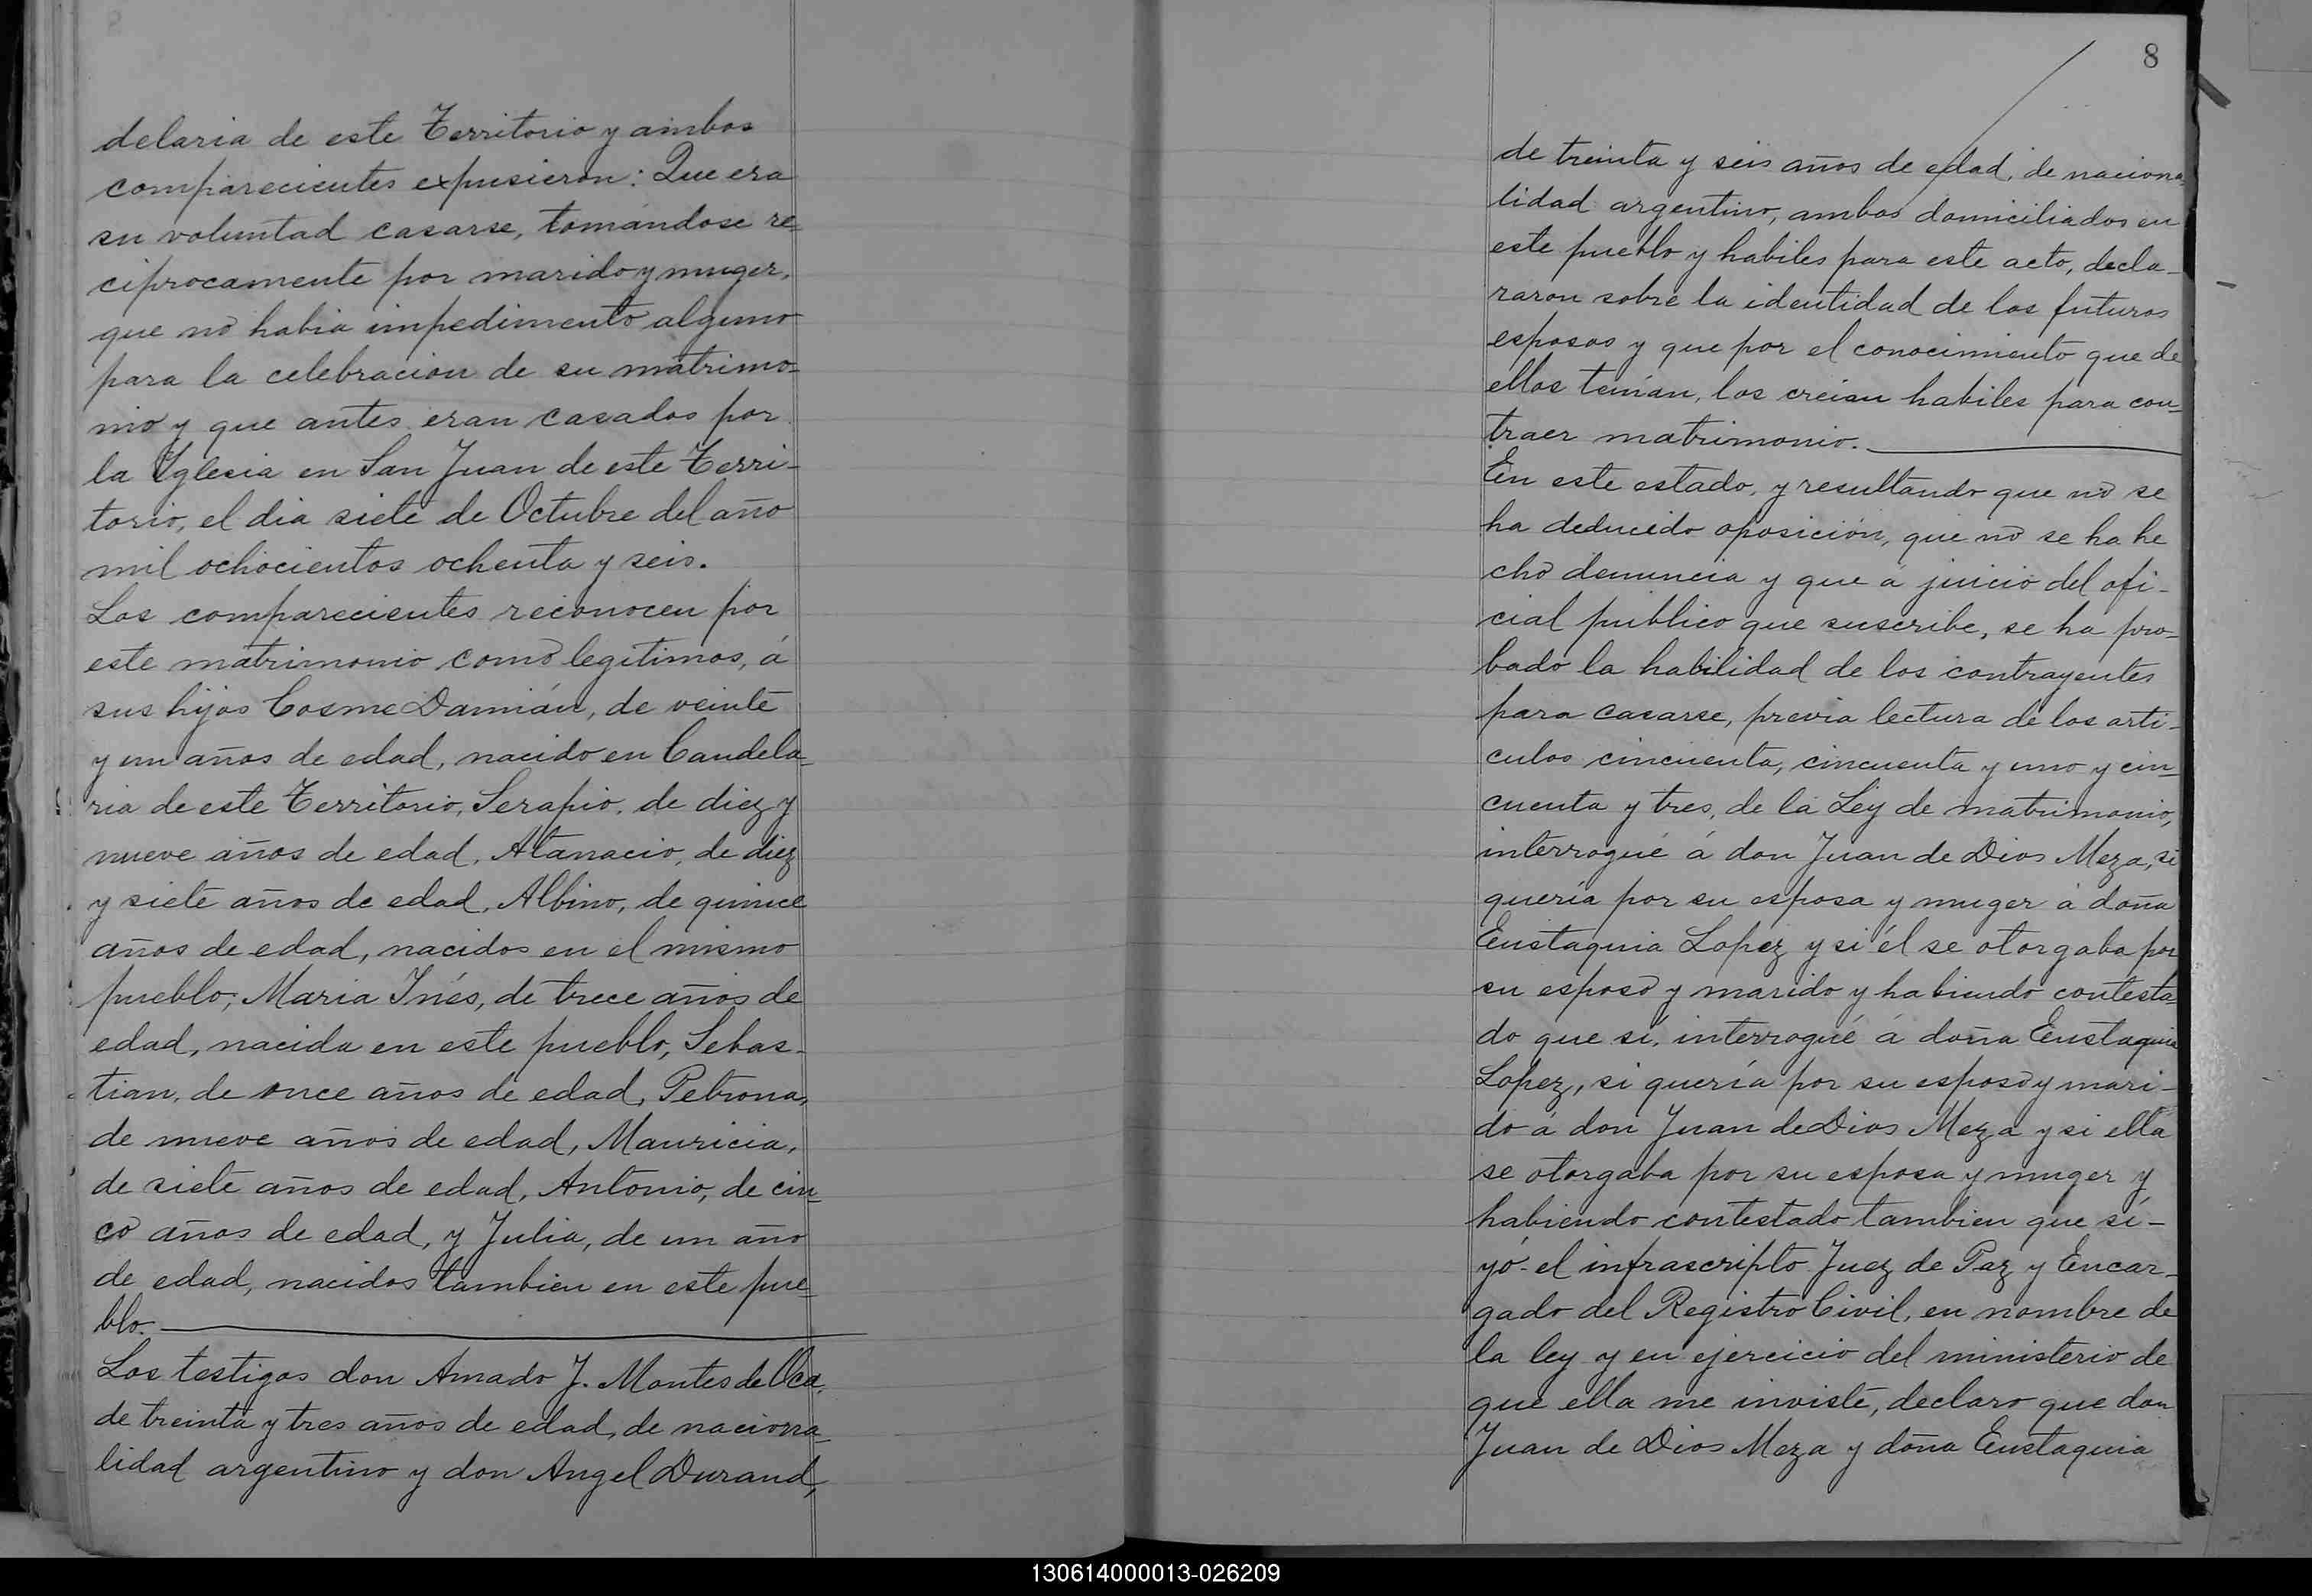 delaria de este Territorio y ambos
comparecientes expusieron: Que era
su voluntad casarse, tomándose re-
ciprocamente por marido y muger,
que no habia impedimento alguno
para la celebracion de su matrimo-
nio y que antes eran casados por
la Yglesia en San Juan de este Terri-
torio, el dia siete de Octubre del año
mil ochocientos ochenta y seis.
Los comparecientes reconocen por
este matrimonio como legitimos, á
sus hijos Cosme Damián, de veinte
y un años de edad, nacido en Candela-
ria de este Territorio, Serapio, de diez y
nueve años de edad, Atanacio, de diez
y siete años de edad, Albino, de quince
años de edad, nacidos en el mismo
pueblo; Maria Ynés, de trece años de
edad, nacida en este pueblo, Sebas-
tian, de once años de edad, Petrona,
de nueve años de edad, Mauricia,
de siete años de edad, Antonio, de cin-
co años de edad, y Julia, de un año
de edad, nacidos tambien en este pue-
blo.
Los testigos don Amado J. Montes de Oca,
de treinta y tres años de edad, de naciona-
lidad argentino y don Angel Durand,
8
de treinta y seis años de edad, de naciona-
lidad argentino, ambos domiciliados en
este pueblo y habiles para este acto, decla-
raron sobre la identidad de los futuros
esposos y que por el conocimiento que de
ellos tenían, los creían habiles para con-
traer matrimonio.
En este estado, y resultando que no se
ha deducido oposición, que no se ha he
cho denuncia y que á juicio del ofi-
cial publico que suscribe, se ha pro-
bado la habilidad de los contrayentes
para casarse, previa lectura de los arti-
culos cincuenta, cincuenta y uno y cin-
cuenta y tres, de la Ley de matrimonio,
interrogué á don Juan de Dios Meza, si
quería por su esposa y muger á doña
Eustaquia Lopez y si él se otorgaba por
su esposo y marido y habiendo contesta-
do que sí, interrogué á doña Eustaquia
Lopez, si quería por su esposo y mari-
do á don Juan de Dios Meza y si ella
se otorgaba por su esposa y muger y
habiendo contestado tambien que sí-
yó el infrascripto Juez de Paz y Encar-
gado del Registro Civil, en nombre de
la ley y en ejercicio del ministerio de
que ella me inviste, declaro que don
Juan de Dios Meza y doña Eustaquia
130614000013-026209